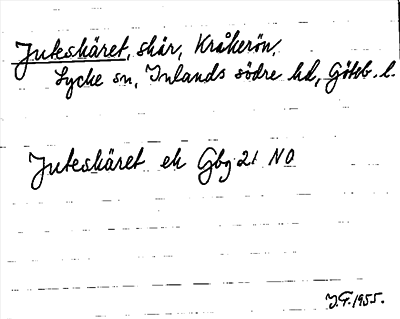 Juteskäret, skär, Kråkerön,
Lycke sn, Inlands södre hd, Göteb. l.
Juteskäret ek Gbg 21 NO
J.F. 1955.